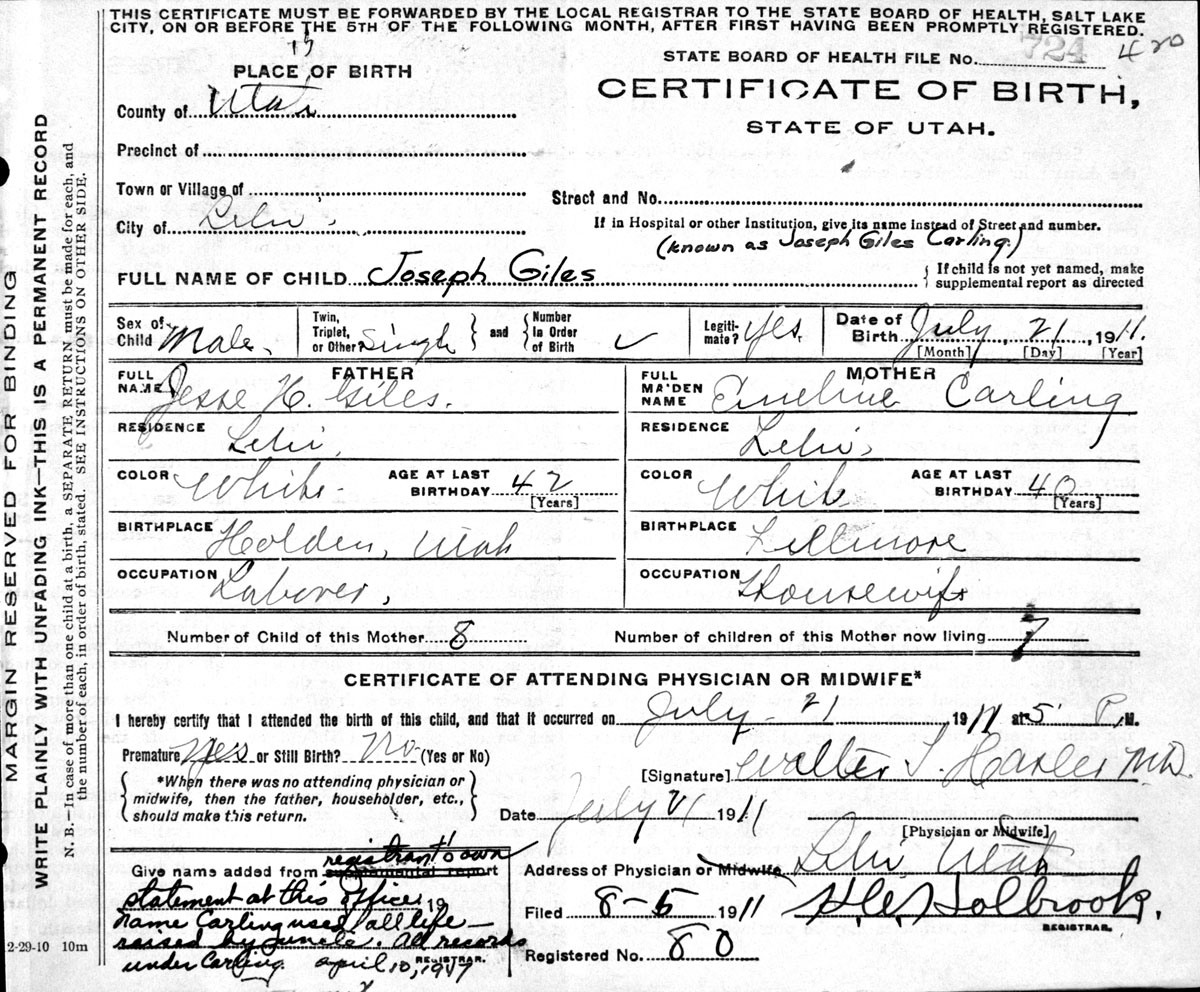 THIS CERTIFICATE MUST BE FORWARDED BY THE LOCAL REGISTRAR TO THE STATE BOARD OF HEALTH, SALT LAKE
CITY, ON OR BEFORE THE 5TH OF THE FOLLOWING MONTH, AFTER FIRST HAVING BEEN PROMPTLY REGISTERED.
15
STATE BOARD OF HEALTH FILE No. 724 420
PLACE OF BIRTH
CERTIFICATE OF BIRTH,
STATE OF UTAH.
County of Utah
Precinct of
Town or Village of
Street and No.
City of Lehi,
If in Hospital or other Institution, give its name instead of Street and number.
(known as Joseph Giles Carling.)
FULL NAME OF CHILD Joseph Giles
{ If child is not yet named, make
supplemental report as directed
Sex of Child Male.
Twin, Triplet, or Other? Single } and { Number In Order of Birth ✓
Legiti-mate? Yes.
Date of Birth July, 21, 1911.
[Month] [Day] [Year]
FATHER
FULL NAME Jesse H. Giles.
RESIDENCE Lehi,
COLOR White
AGE AT LAST BIRTHDAY 42
[Years]
BIRTHPLACE Holden, Utah
OCCUPATION Laborer,
MOTHER
FULL MAIDEN NAME Emeline Carling
RESIDENCE Lehi,
COLOR White
AGE AT LAST BIRTHDAY 40
[Years]
BIRTHPLACE Fillmore
OCCUPATION Housewife
Number of Child of this Mother 8
Number of children of this Mother now living 7
CERTIFICATE OF ATTENDING PHYSICIAN OR MIDWIFE*
I hereby certify that I attended the birth of this child, and that it occurred on July - 21 1911 at 5 P.M.
Premature Yes or Still Birth? No (Yes or No)
{ *When there was no attending physician or
midwife, then the father, householder, etc.,
should make this return. }
[Signature] Walter T. Hasler M.D.
Date July 21 1911
[Physician or Midwife]
Give name added from supplemental report
registrant's own
statement at this office 19
name Carling used all life —
raised by uncle. All records
under Carling. April 10, 1947
REGISTRAR.
Address of Physician or Midwife, Lehi, Utah
Filed 8-5 1911 H.C. Holbrook.
REGISTRAR.
Registered No. 80
2-29-10 10m
MARGIN RESERVED FOR BINDING
WRITE PLAINLY WITH UNFADING INK—THIS IS A PERMANENT RECORD
N. B.—In case of more than one child at a birth, a SEPARATE RETURN must be made for each, and
the number of each, in order of birth, stated. SEE INSTRUCTIONS ON OTHER SIDE.